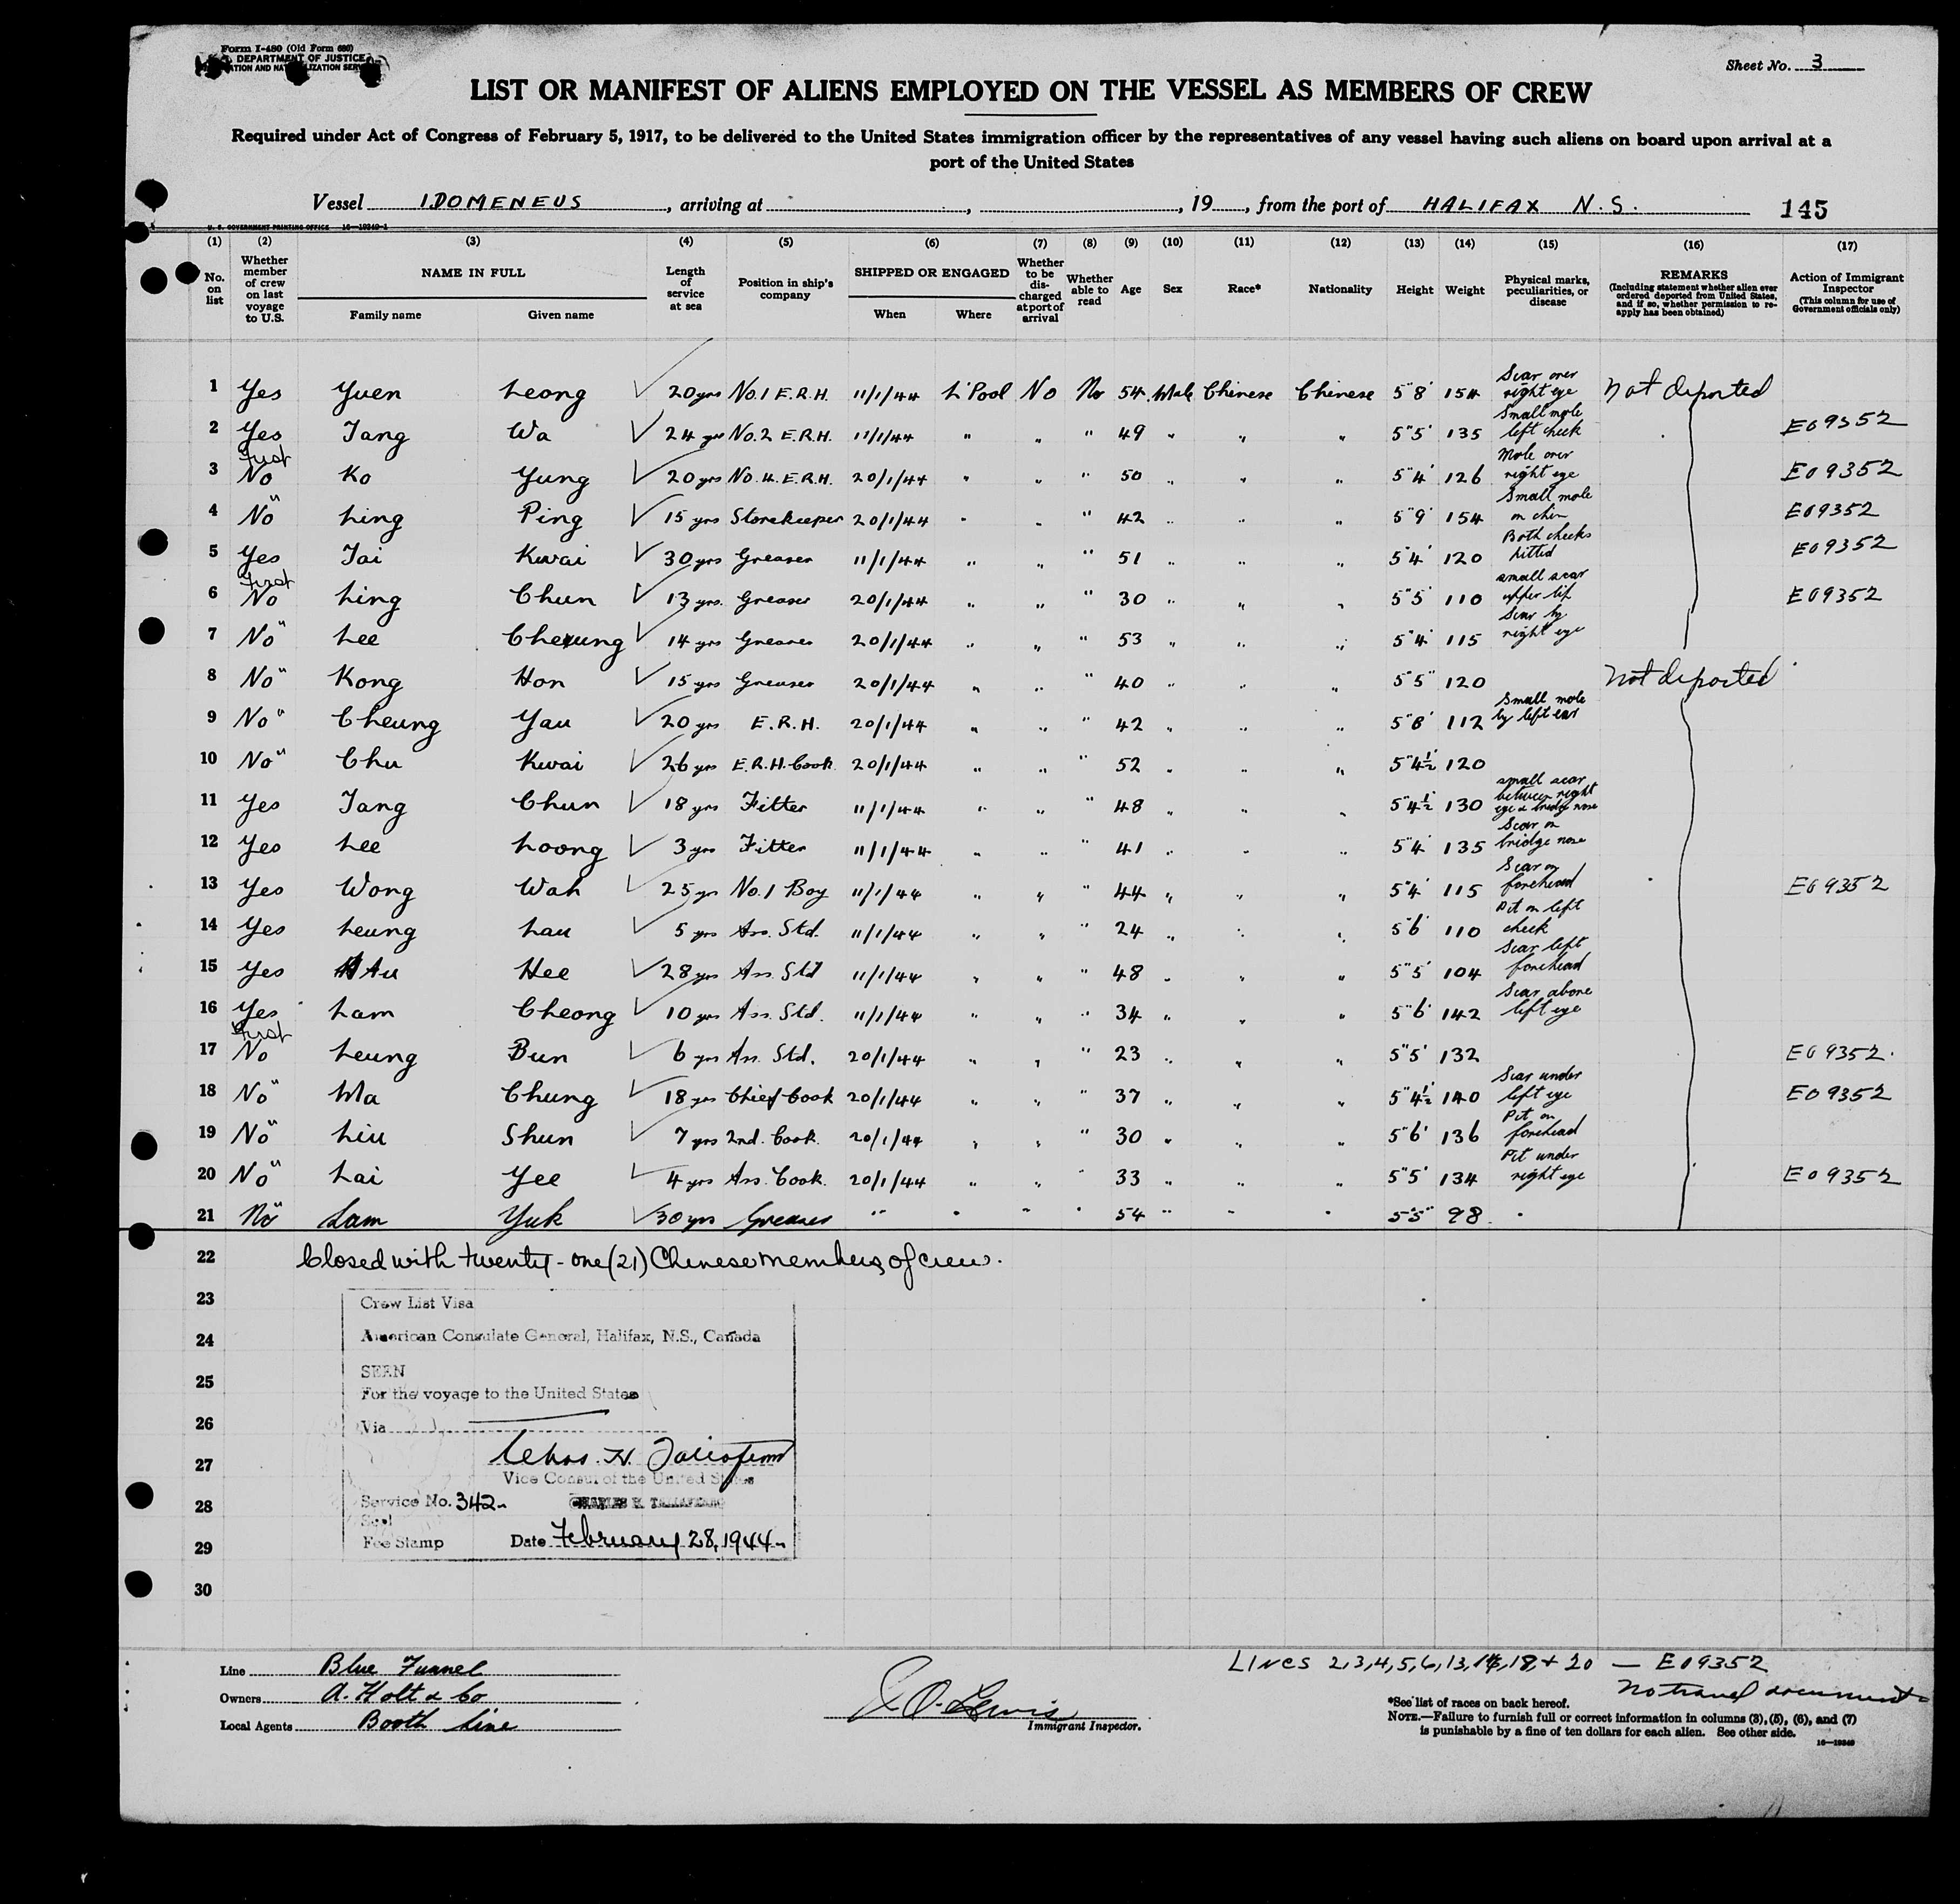 Form I-480 (Old Form 680)
DEPARTMENT OF JUSTICE
Sheet No. 3
LIST OR MANIFEST OF ALIENS EMPLOYED ON THE VESSEL AS MEMBERS OF CREW
Required under Act of Congress of February 5, 1917, to be delivered to the United States immigration officer by the representatives of any vessel having such aliens on board upon arrival at a
port of the United States
Vessel IDOMENEUS, arriving at , , 19 , from the port of HALIFAX N.S. 145
U. S. GOVERNMENT PRINTING OFFICE 16—19349-1
(1) (2) (3) (4) (5) (6) (7) (8) (9) (10) (11) (12) (13) (14) (15) (16) (17)
No. on list
Whether member of crew on last voyage to U.S.
NAME IN FULL
Family name Given name
Length of service at sea
Position in ship's company
SHIPPED OR ENGAGED
When Where
Whether to be discharged at port of arrival
Whether able to read
Age
Sex
Race*
Nationality
Height
Weight
Physical marks, peculiarities, or disease
REMARKS
(Including statement whether alien ever ordered deported from United States, and if so, whether permission to reapply has been obtained)
Action of Immigrant Inspector
(This column for use of Government officials only)
1 Yes Yuen Leong 20 yrs No.1 E.R.H. 11/1/44 L'Pool No No 54 Male Chinese Chinese 5"8' 154 Scar over right eye Not deported
2 Yes Tang Wa 24 yrs No.2 E.R.H. 11/1/44 " " " 49 " " " 5"5' 135 Small mole left cheek E09352
3 First No Ko Yung 20 yrs No.4. E.R.H. 20/1/44 " " " 50 " " " 5"4' 126 Mole over right eye E09352
4 No " Ling Ping 15 yrs Storekeeper 20/1/44 " " " 42 " " " 5"9' 154 Small mole on chin E09352
5 Yes Tai Kwai 30 yrs Greaser 11/1/44 " " " 51 " " " 5"4' 120 Both cheeks pitted E09352
6 First No Ling Chun 13 yrs. Greaser 20/1/44 " " " 30 " " " 5"5' 110 small scar upper lip E09352
7 No " Lee Cheung 14 yrs Greaser 20/1/44 " " " 53 " " " 5"4' 115 Scar by right eye
8 No " Kong Hon 15 yrs Greaser 20/1/44 " " " 40 " " " 5"5" 120 Not deported
9 No " Cheung Yau 20 yrs E.R.H. 20/1/44 " " " 42 " " " 5"8' 112 Small mole by left ear
10 No " Chu Kwai 26 yrs E.R.H. Cook 20/1/44 " " " 52 " " " 5"4½' 120
11 Yes Tang Chun 18 yrs Fitter 11/1/44 " " " 48 " " " 5"4½' 130 small scar between right eye & bridge nose
12 Yes Lee Loong 3 yrs Fitter 11/1/44 " " " 41 " " " 5"4' 135 Scar on bridge nose
13 Yes Wong Wah 25 yrs No.1 Boy 11/1/44 " " " 44 " " " 5"4' 115 Scar on forehead E09352
14 Yes Leung Lau 5 yrs Ass. Std. 11/1/44 " " " 24 " " " 5"6' 110 Pit on left cheek
15 Yes Au Hee 28 yrs Ass. Std 11/1/44 " " " 48 " " " 5"5' 104 Scar left forehead
16 Yes Lam Cheong 10 yrs Ass. Std. 11/1/44 " " " 34 " " " 5"6' 142 Scar above left eye
17 First No Leung Bun 6 yrs Ass. Std. 20/1/44 " " " 23 " " " 5"5' 132 E09352.
18 No " Ma Chung 18 yrs Chief Cook 20/1/44 " " " 37 " " " 5"4½' 140 Scar under left eye E09352
19 No " Liu Shun 7 yrs 2nd. Cook. 20/1/44 " " " 30 " " " 5"6' 136 Pit on forehead
20 No " Lai Yee 4 yrs Ass. Cook. 20/1/44 " " " 33 " " " 5"5' 134 Pit under right eye E09352
21 No " Lam Yuk 30 yrs Greaser " " " " 54 " " " 5"5" 98
22 Closed with twenty-one (21) Chinese members of crew.
23
24
25
26
27
28
29
30
Crew List Visa
American Consulate General, Halifax, N.S., Canada
SEEN
For the voyage to the United States
Via
Chas. H. Taliaferro
Vice Consul of the United States
Service No. 342
Seal
Fee Stamp Date February 28, 1944
Line Blue Funnel
Owners A. Holt & Co
Local Agents Booth Line
Immigrant Inspector.
LINES 2,3,4,5,6,13,17,18,+ 20 — E09352
No travel documents
*See list of races on back hereof.
NOTE.—Failure to furnish full or correct information in columns (3), (5), (6), and (7)
is punishable by a fine of ten dollars for each alien. See other side.
16—19349